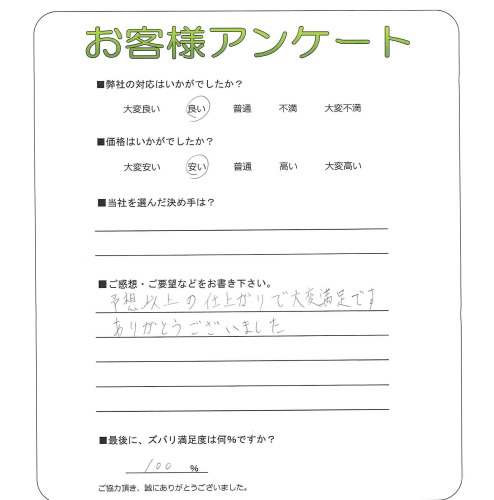 お客様アンケート
■弊社の対応はいかがでしたか？
大変良い 良い 普通 不満 大変不満
■価格はいかがでしたか?
大変安い 安い 普通 高い 大変高い
■当社を選んだ決め手は？
■ご感想・ご要望などをお書き下さい。
予想以上の仕上がりで大変満足です
ありがとうございました
■最後に、ズバリ満足度は何%ですか？
100 %
ご協力頂き、誠にありがとうございました。